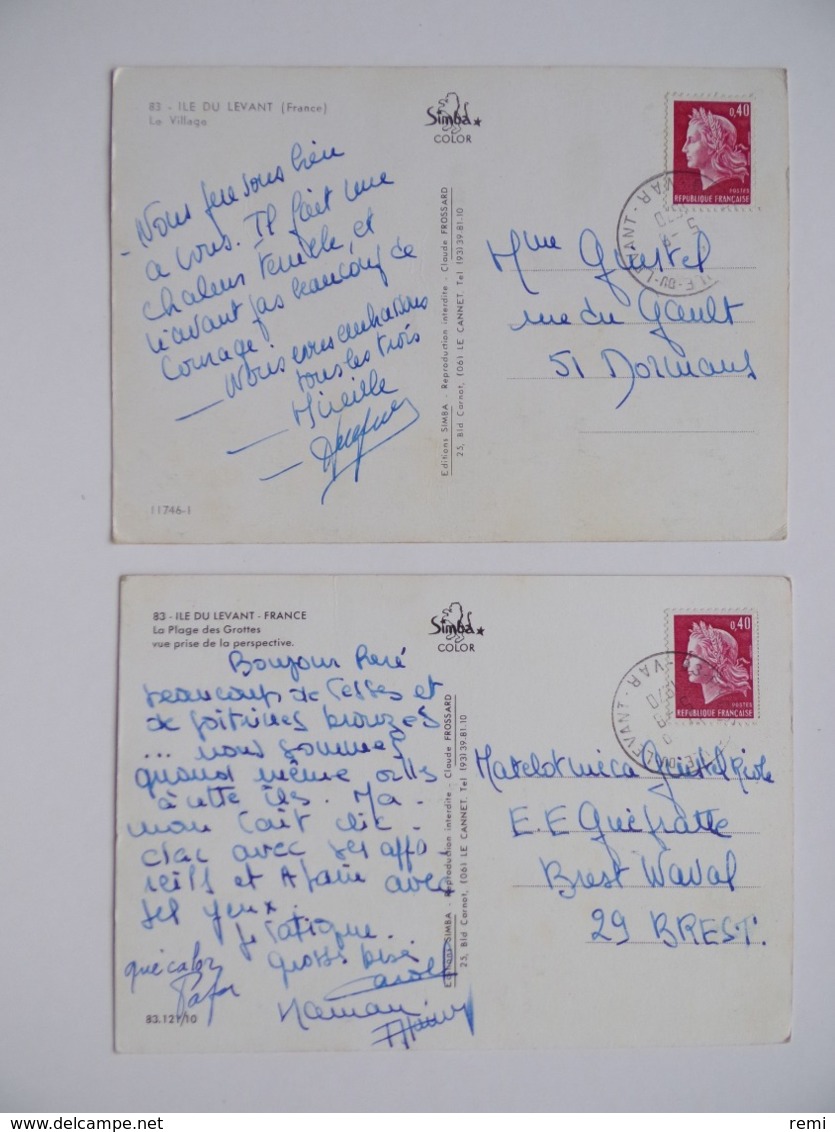 83 - ILE DU LEVANT (France)
Le Village
Simba
COLOR
0,40
POSTES
REPUBLIQUE FRANÇAISE
ILE-DU-LEVANT - VAR
- Nous pensons bien
a vous. Il fait une
chaleur terrible, et
n'avant pas beaucoup de
Courage!
— Nous vous embrassons
tous les trois
— Mireille
Editions SIMBA - Reproduction interdite - Claude FROSSARD
25, Bld Carnot, (06) LE CANNET. Tel (93) 39.81.10
Mme Quistel
rue du Gault
51 Dormans
11746-1
83 - ILE DU LEVANT - FRANCE
La Plage des Grottes
vue prise de la perspective.
Simba
COLOR
0,40
POSTES
REPUBLIQUE FRANÇAISE
Bonjour René
beaucoup de fesses et
de poitrines bronzées
... nous sommes
quand même
à cette îles. Ma-
man fait clic-
clac avec ses appa-
reils et Alain avec
ses yeux.
je fatigue.
grosse bise
Carole
Maman
Alain
que calor
Papa
Editions SIMBA - Reproduction interdite - Claude FROSSARD
25, Bld Carnot, (06) LE CANNET. Tel (93) 39.81.10
Matelot méca
Brest Naval
29 BREST.
83.121/10
delcampe.net
remi